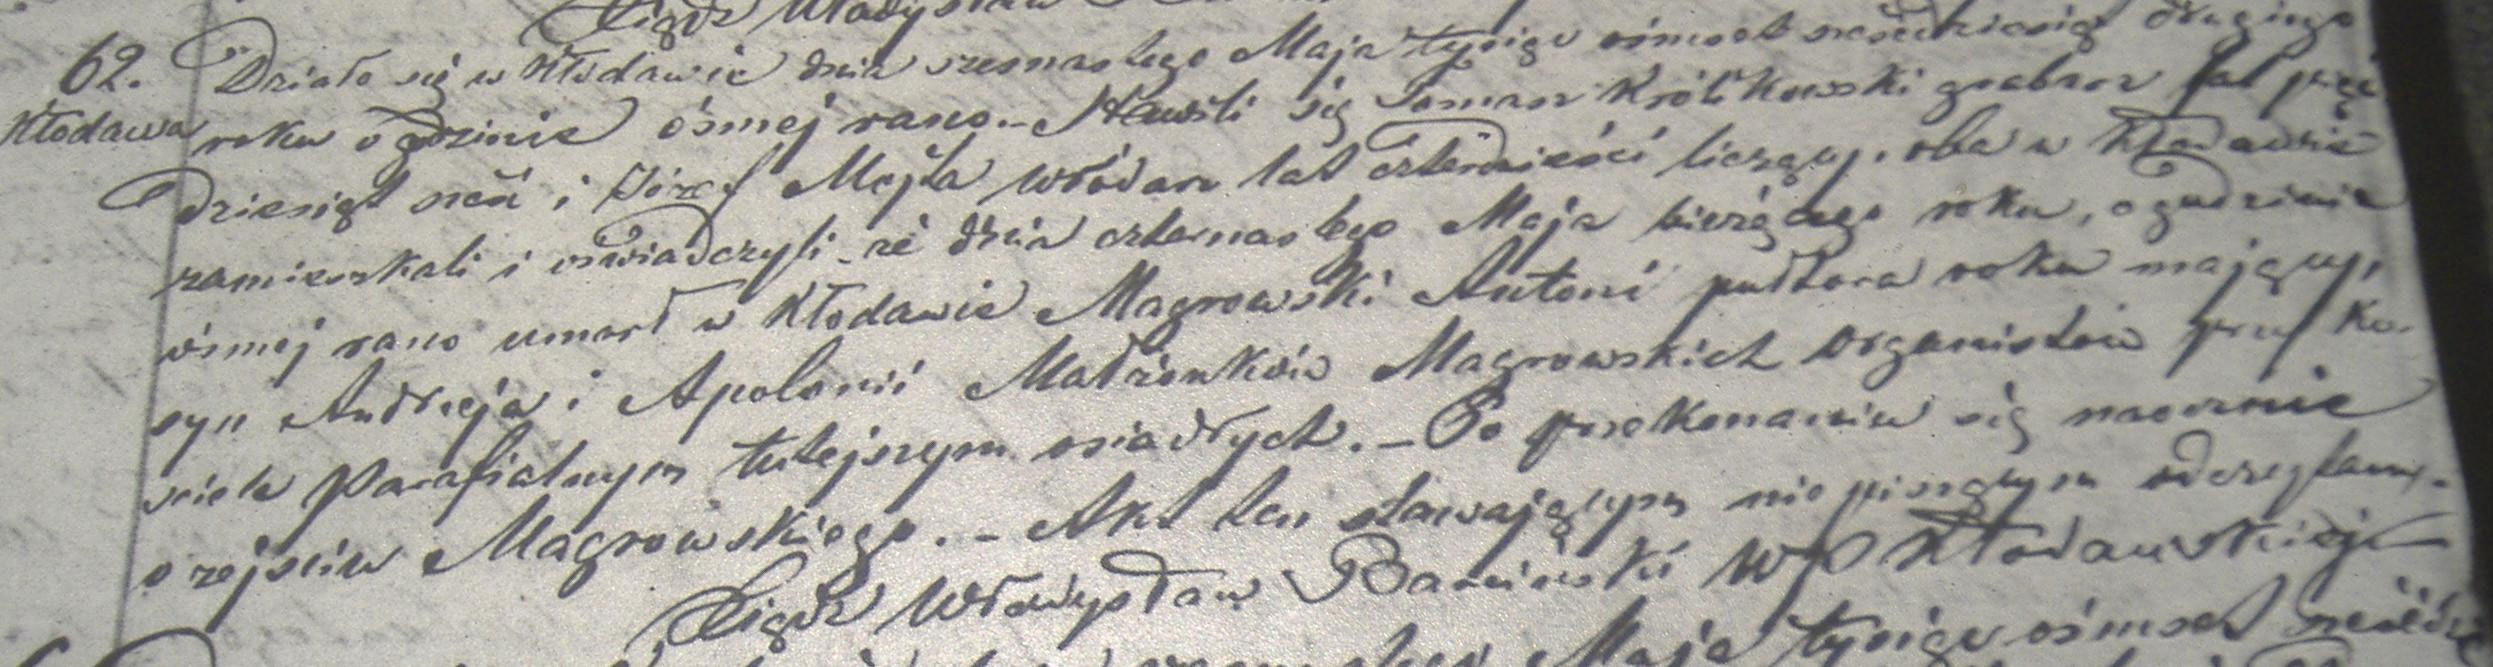 Xiądz Władysław
62. Działo się w Kłodawie dnia szesnastego Maja tysiąc ośmset sześćdziesiąt drugiego
Kłodawa roku o godzinie ósmej rano. – Stawili się Tomasz Królikowski grabarz lat pięć
dziesiąt sześć i Józef Mejza włódarz lat czterdzieści liczący, oba w Kłodawie
zamieszkali i oświadczyli, że dnia czternastego Maja bieżącego roku, o godzinie
ósmej rano umarł w Kłodawie Magrowski Antoni półtora roku mający,
syn Andrzeja i Apolonii Małżonków Magrowskich Organistów przy Ko-
ściele Parafialnym tutejszym osiadłych. – Po przekonaniu się naocznie
o zejściu Magrowskiego. – Akt ten stawającym nie piszącym odczytany. –
Xiądz Władysław Barciński WP Kłodawskiej
Maja tysiąc ośmset sześćdzie